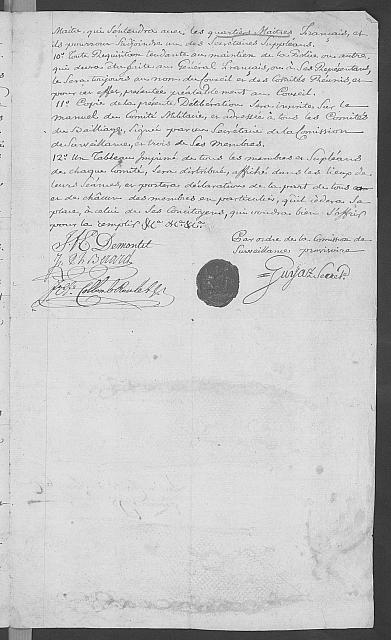 Maitre, qui S'entendra avec les quartiers Maitres Français, et
ils pourront S'adjoindre un des Secretaires Suppleans.
10.° Toute Requisition tendante au maintien de la Police ou autre,
qui devra être faite au Général Français, ou à Ses Représentans,
le Sera toujours au nom du Conseil et des Comités Réunis, et
pour cet effet, présentée préalablement au Conseil.
11.° Copie de la présente Délibération Sera inscrite Sur le
manuel du Comité Militaire, et adressée à tous les Comités
du Bailliage, Signée par un Secrétaire de la Commission
de Surveillance, et trois de Ses Membres.
12.° Un Tableau Imprimé de tous les membres et Supléans
de chaque Comité, Sera distribué, affiché dans les lieux de
leurs Séances, et portera déclaration de la part de tous
et de chacun des membres en particulier, qu'il cèdera Sa
place, à celui de Ses Concitoyens, qui voudra bien S'offrir
pour la remplir &c. &c. &c.
Par ordre de la Commission de
Surveillance provisoire
Demontet
Gujaz Secrét.